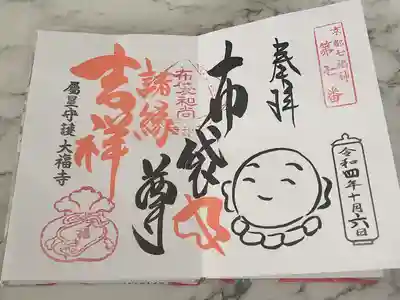 京都七福神
第七番
奉拝
令和四年十月六日
布袋尊
布袋和尚
諸縁
吉祥
大福寺